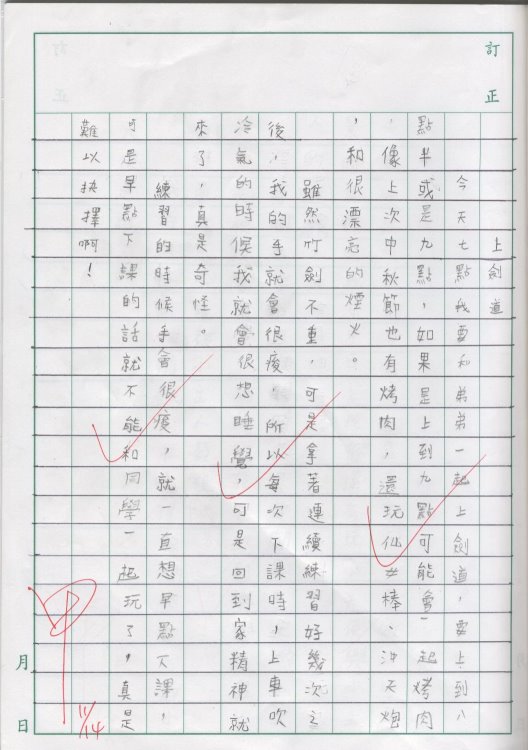 訂正
上劍道
今天七點我要和弟弟一起上劍道，要上到八
點半或是九點，如果是上到九點可能會一起烤肉
，像上次中秋節也有烤肉，還玩仙女棒、沖天炮
，和很漂亮的煙火。
雖然竹劍不重，可是拿著連續練習好幾次之
後，我的手就會很痠，所以每次下課時，上車吹
冷氣的時候我就會很想睡覺，可是回到家精神就
來了，真是奇怪。
練習的時候手會很痠，就一直想早點下課，
可是早點下課的話就不能和同學一起玩了，真是
難以抉擇啊！
甲
11/14
月 日